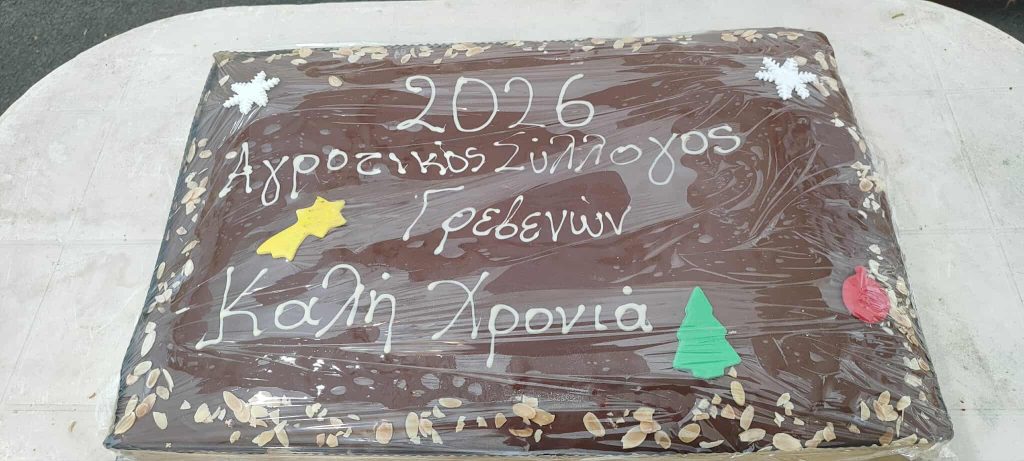 2026
Αγροτικός Σύλλογος
Γρεβενών
Καλή Χρονιά